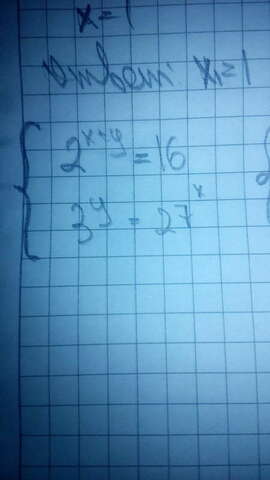 x=1
ответ: x=1
2^{x+y}=16
3^{y}=27^{x}